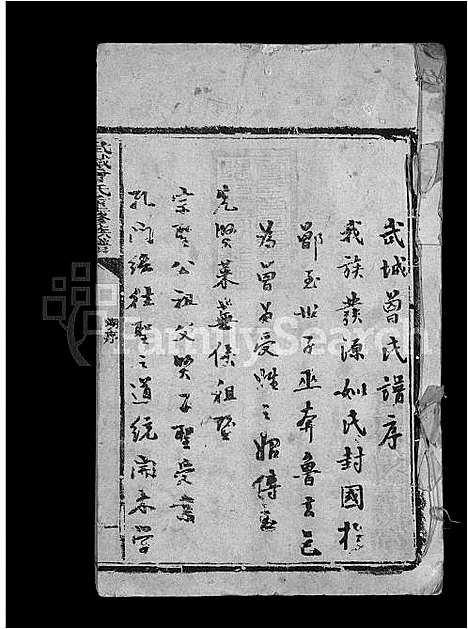 武城曾氏譜序
我族發源姒氏封國於
鄫至世子巫奔魯去邑
為曾爲受姓之始傳至
先賢萊蕪侯祖暨
宗聖公祖父賢子聖受業
孔門繼往聖之道統開來學
武城曾氏重修族譜
FamilySearch